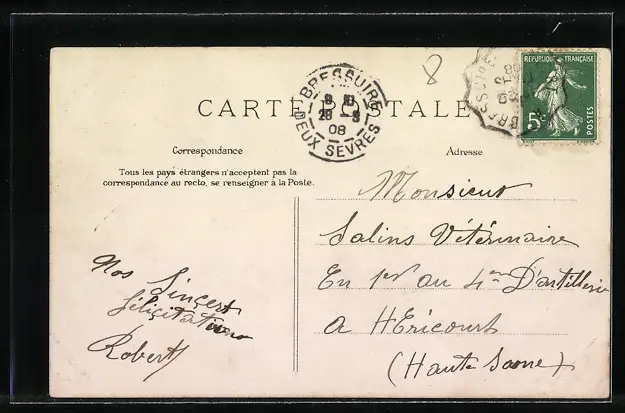 8
CARTE POSTALE
BRESSUIRE
28 - 9
08
DEUX SEVRES
REPUBLIQUE FRANÇAISE
5c
POSTES
Correspondance
Adresse
Tous les pays étrangers n'acceptent pas la
correspondance au recto, se renseigner à la Poste.
Monsieur
Salins Vétérinaire
En 1er au 4em D'artillerie
A HEricourt
(Haute Saone)
Nos Sinçert
féliçitations
Robert